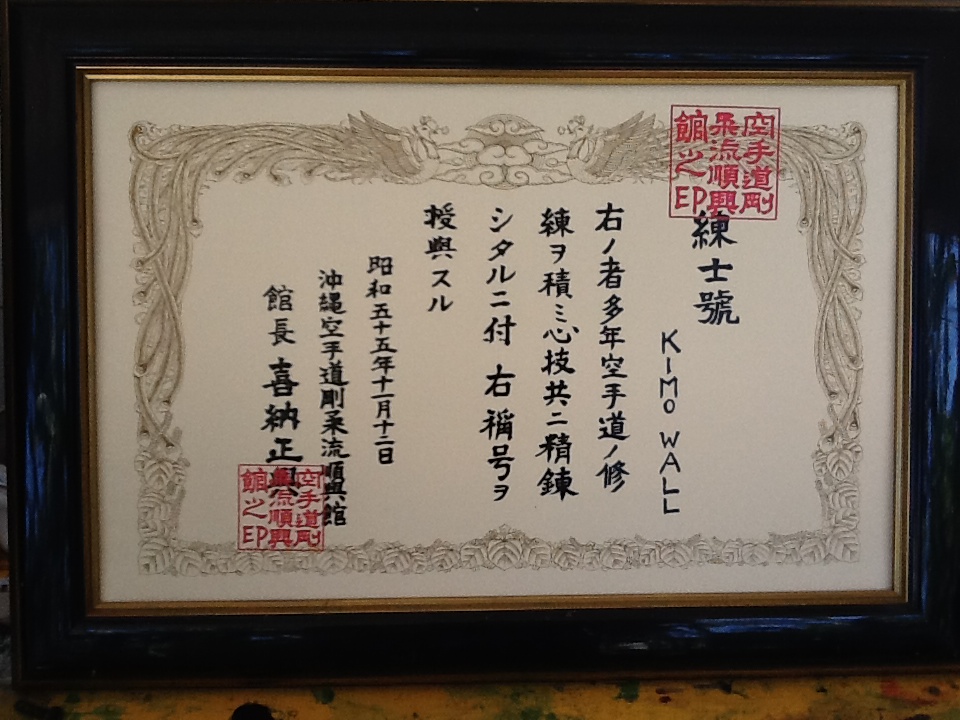 空手道剛
柔流順興
館之印
練士號
KIMO WALL
右ノ者多年空手道ノ修
練ヲ積ミ心技共ニ精錬
シタルニ付右稱号ヲ
授與スル
昭和五十五年十一月十二日
沖縄空手道剛柔流順興館
館長 喜納正興
空手道剛
柔流順興
館之印